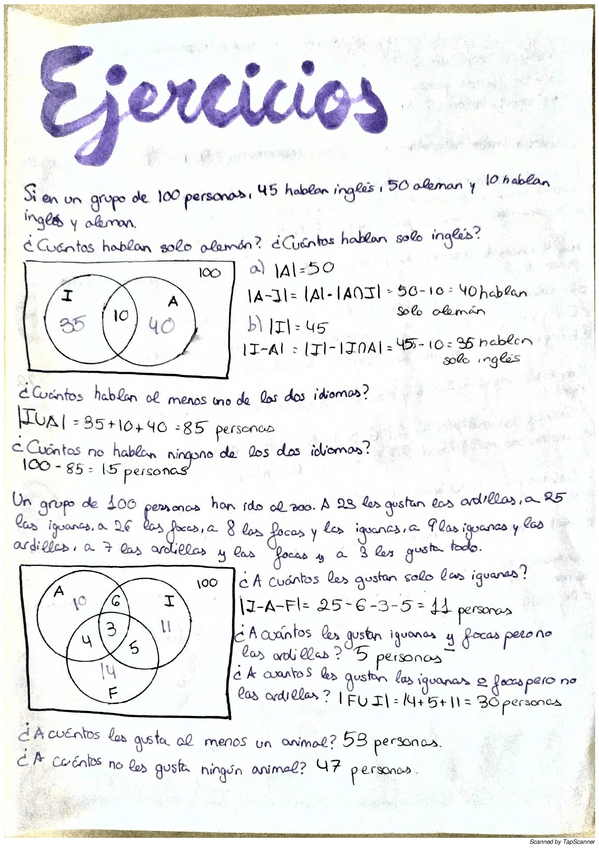 Ejercicios
Si en un grupo de 100 personas, 45 hablan inglés, 50 aleman y 10 hablan
inglés y aleman.
¿Cuántos hablan solo alemán? ¿Cuántos hablan solo inglés?
100
I
A
35
10
40
a) |A| = 50
|A-I| = |A| - |A∩I| = 50-10 = 40 hablan
solo alemán
b) |I| = 45
|I-A| = |I| - |I∩A| = 45-10 = 35 hablan
solo inglés
¿Cuántos hablan al menos uno de los dos idiomas?
|I∪A| = 35+10+40 = 85 personas
¿Cuántos no hablan ninguno de los dos idiomas?
100-85 = 15 personas
Un grupo de 100 personas han ido al zoo. A 23 les gustan las ardillas, a 25
las iguanas, a 26 las focas, a 8 las focas y las iguanas, a 9 las iguanas y las
ardillas, a 7 las ardillas y las focas y a 3 les gusta todo.
100
A
10
6
I
3
11
4
5
14
F
¿A cuántos les gustan solo las iguanas?
|I-A-F| = 25-6-3-5 = 11 personas
¿A cuántos les gustan iguanas y focas pero no
las ardillas? 5 personas
¿A cuantos les gustan las iguanas o focas pero no
las ardillas? |F∪I| = 14+5+11 = 30 personas
¿A cuántos les gusta al menos un animal? 53 personas.
¿A cuántos no les gusta ningún animal? 47 personas.
Scanned by TapScanner